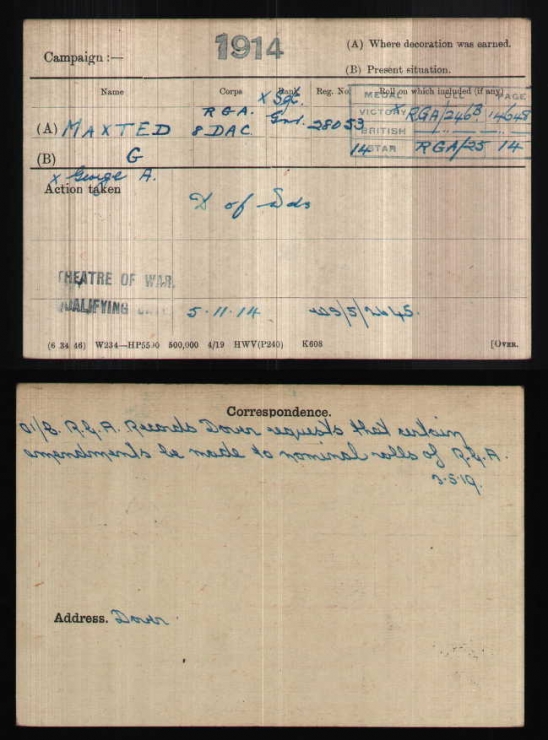 Campaign :—
1914
(A) Where decoration was earned.
(B) Present situation.
Name Corps Rank Reg. No. Roll on which included (if any)
MEDAL ROLL PAGE
(A) MAXTED R.G.A. x Sgt. VICTORY x RGA/246B
8 DAC. Gnr. 28053 BRITISH
(B) G 14 STAR RGA/25 14
x George A.
Action taken
D of Dds
THEATRE OF WAR.
QUALIFYING DATE 5.11.14
(6 34 46) W234—HP5590 500,000 4/19 HWV(P240) K608 [Over.
Correspondence.
O i/c. R.G.A. Records Dover requests that certain
amendments be made to nominal rolls of R.G.A.
3.5.19.
Address. Dover